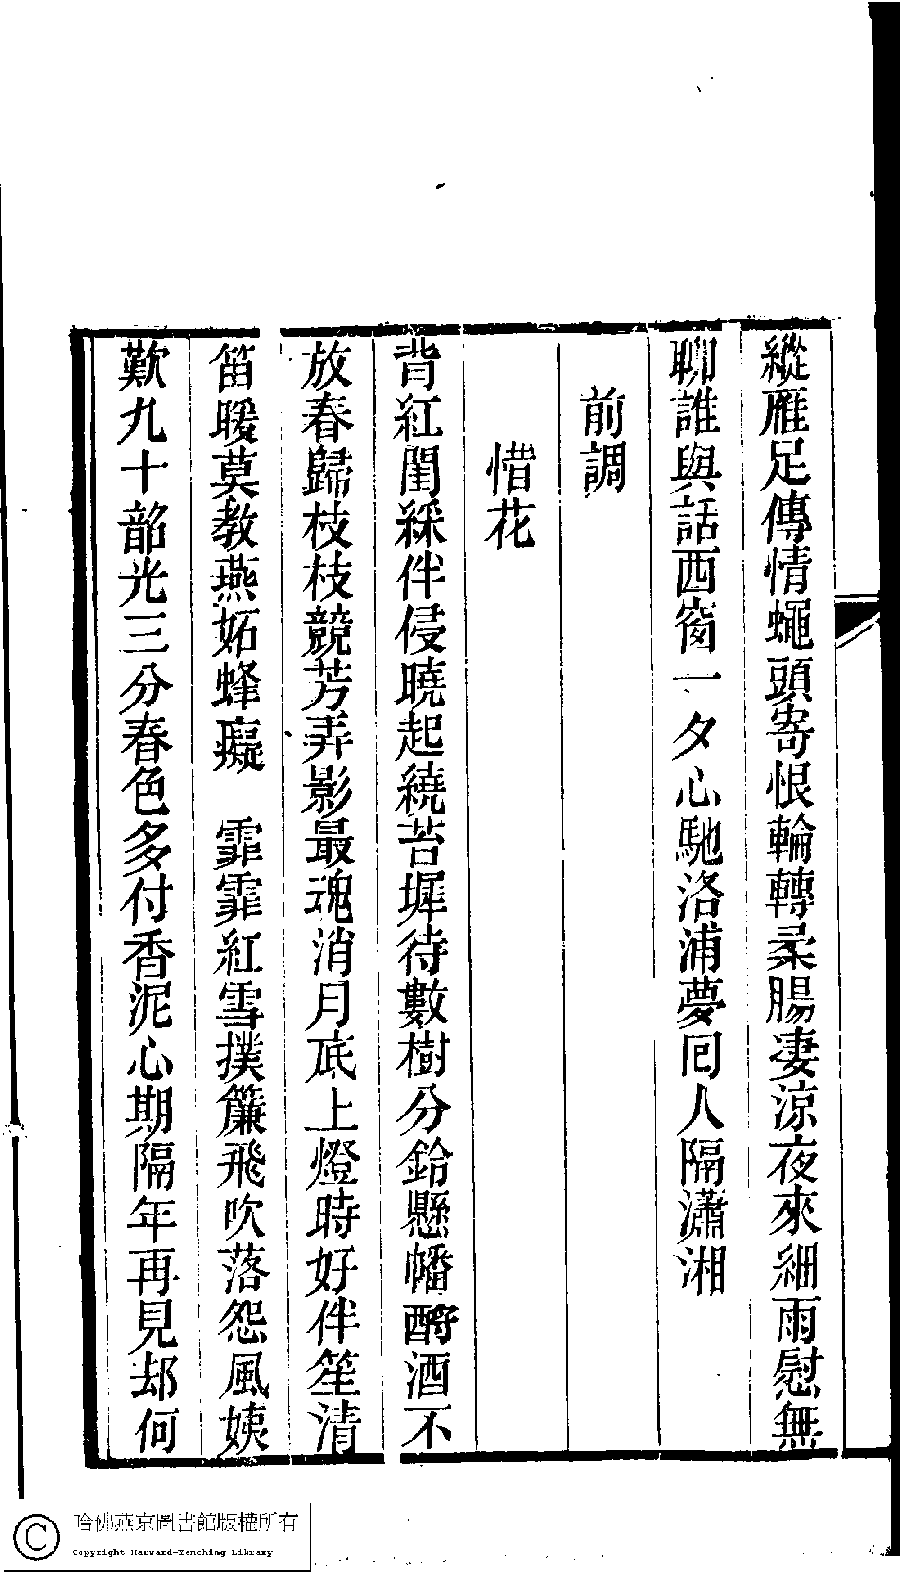 縱雁足傳情蠅頭寄恨輪轉柔腸凄涼夜來細雨慰無
聊誰與話西窗一夕心馳洛浦夢囘人隔瀟湘
前調
惜花
背紅閨綵伴侵曉起繞苔墀待數樹分鈴懸幡酹酒不
放春歸枝枝競芳弄影最魂消月底上燈時好伴笙清
笛暖莫教燕妬蜂癡　霏霏紅雪撲簾飛吹落怨風姨
歎九十韶光三分春色多付香泥心期隔年再見却何
哈佛燕京圖書館版權所有
Copyright Harvard-Yenching Library